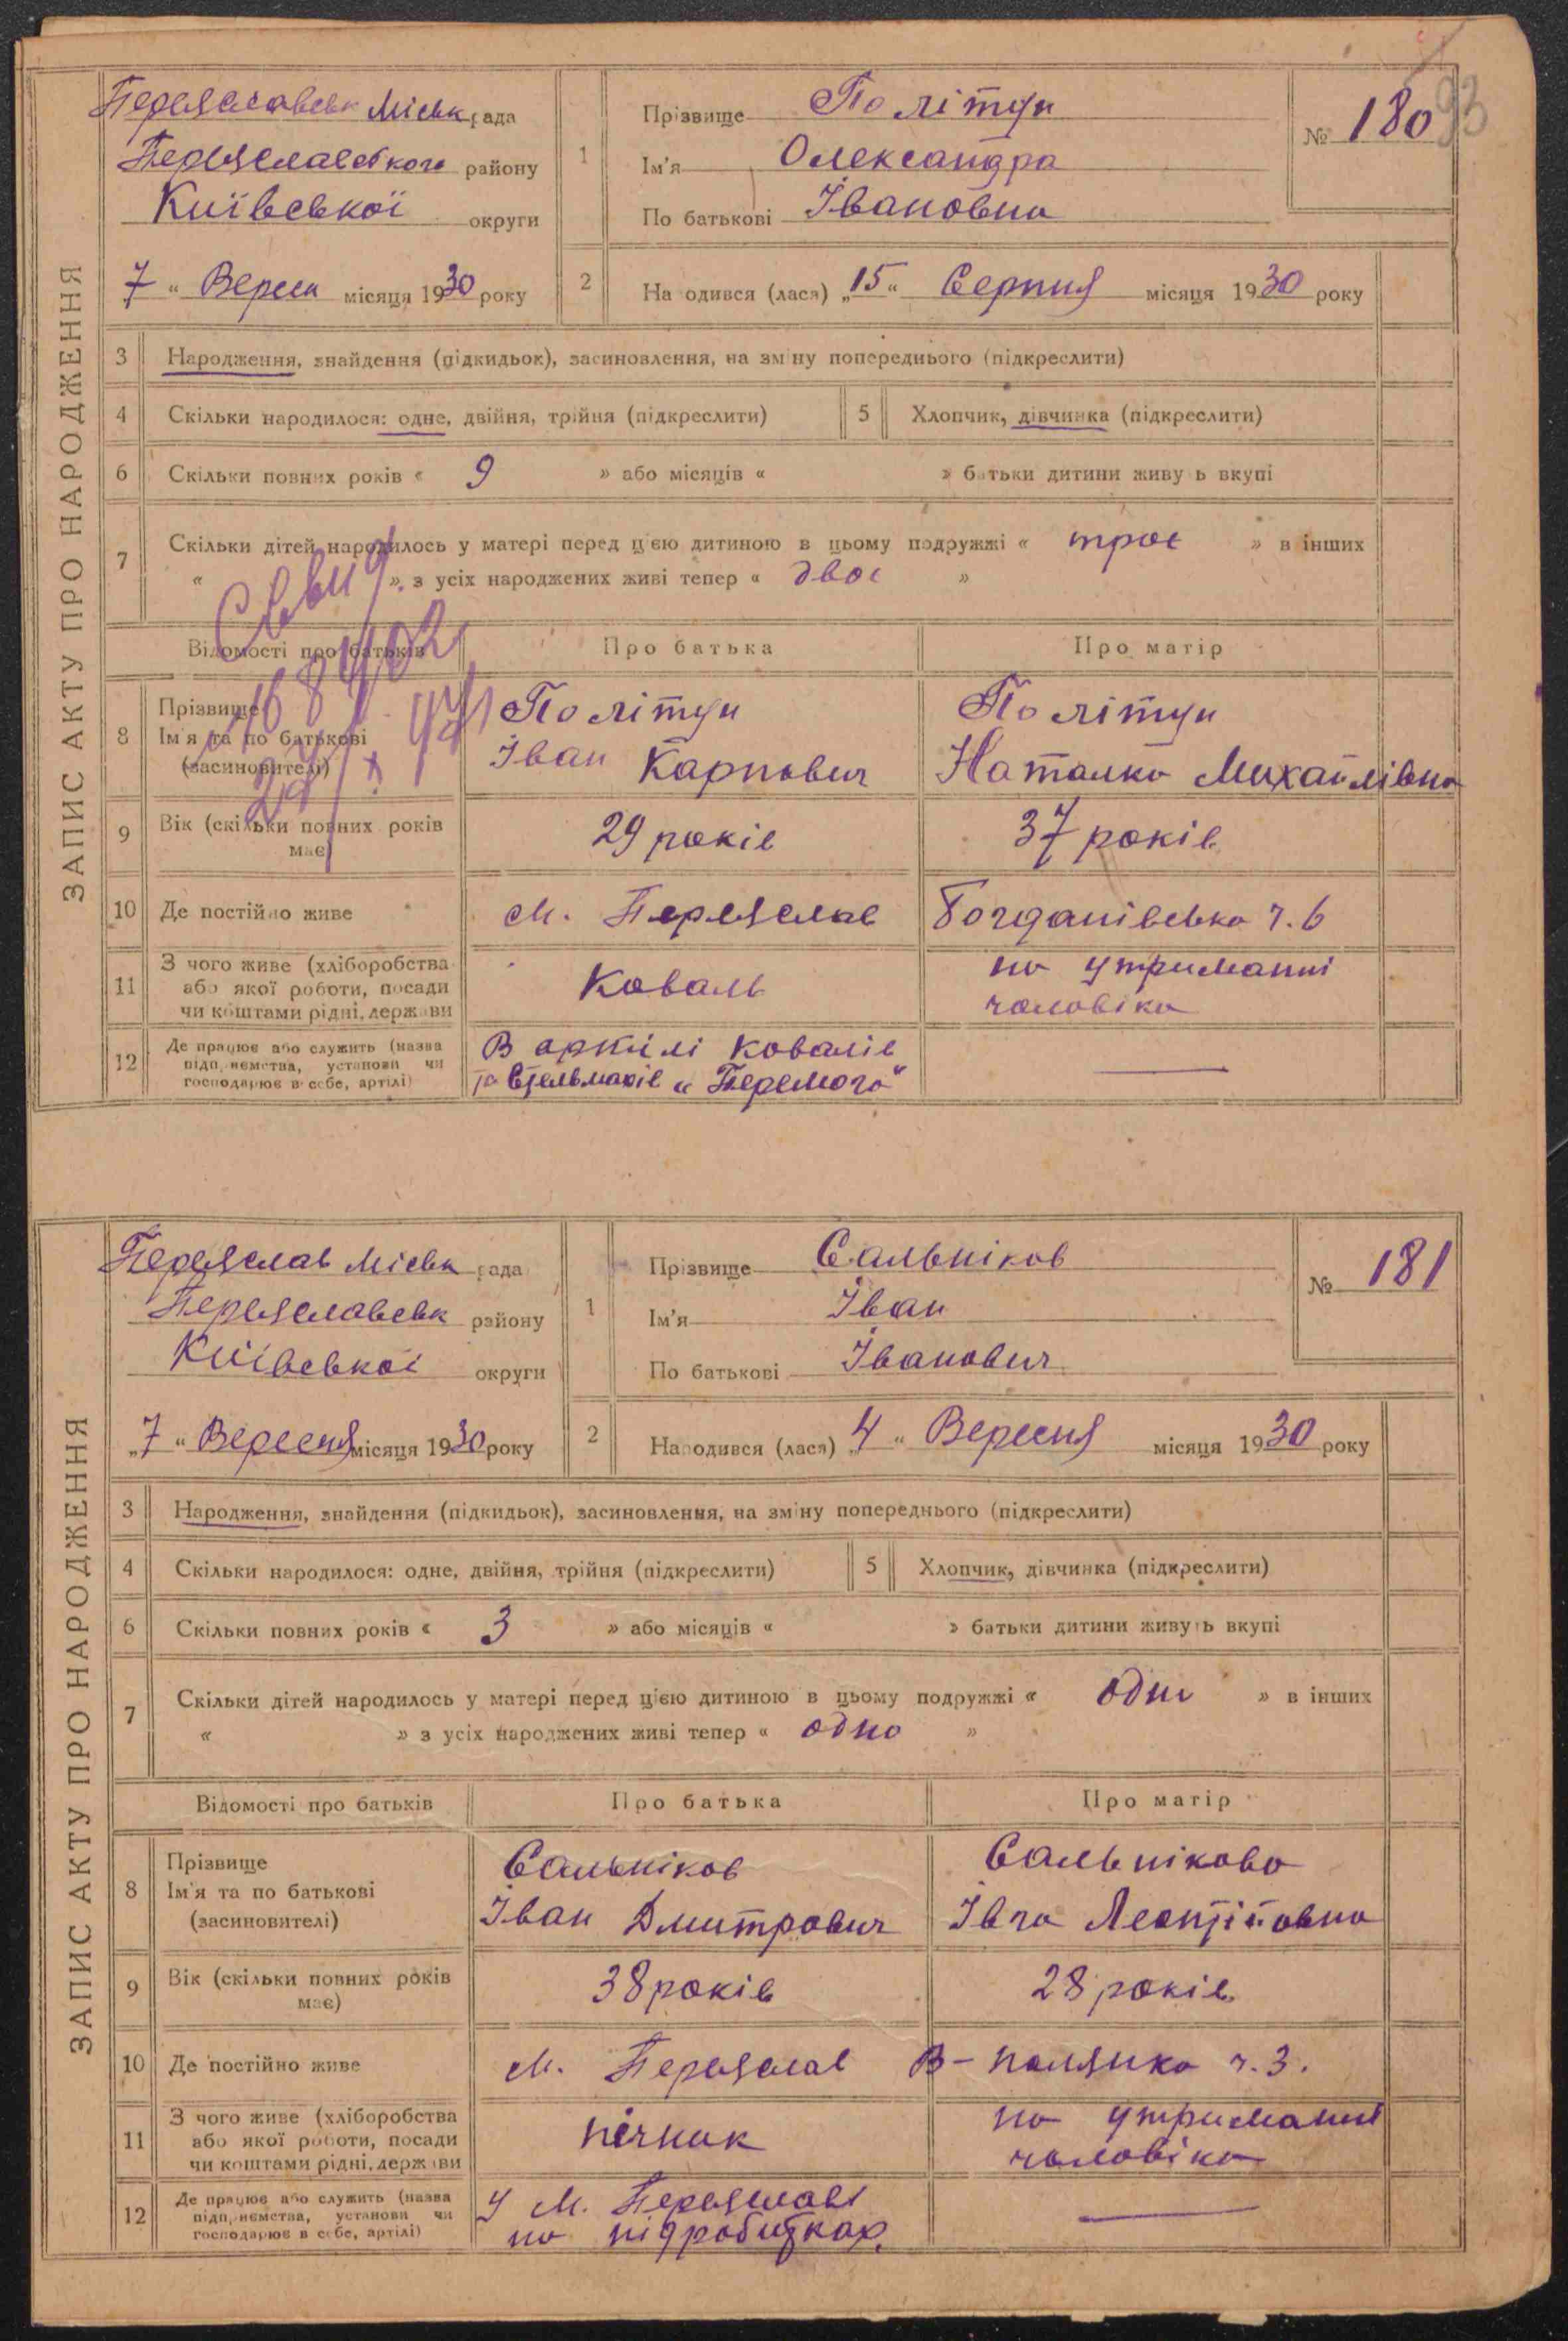 ЗАПИС АКТУ ПРО НАРОДЖЕННЯ
93
Переяславськ Міськ рада
Переяславського району
Київської округи
7 " Вересн місяця 1930 року
1
Прізвище Політун
Ім'я Олександра
По батькові Івановна
№ 180
2
На одився (лася) „15" Серпня місяця 1930 року
3 Народження, знайдення (підкидьок), засиновлення, на зміну попереднього (підкреслити)
4 Скільки народилося: одне, двійня, трійня (підкреслити) 5 Хлопчик, дівчинка (підкреслити)
6 Скільки повних років « 9 » або місяців « » батьки дитини живуть вкупі
7 Скільки дітей народилось у матері перед цією дитиною в цьому подружжі « троє » в інших
« » з усіх народжених живі тепер « двоє »
Відомості про батьків Про батька Про матір
8 Прізвище Ім'я та по батькові (засиновителі)
Політун Іван Карпович
Політун Наталка Михайлівна
9 Вік (скільки повних років має) 29 років 37 років
10 Де постійно живе м. Переяслав Богданівська ч. 6
11 З чого живе (хліборобства або якої роботи, посади чи коштами рідні, держави
Коваль
на утриманні чоловіка
12 Де працює або служить (назва підприємства, установи чи господарює в себе, артілі)
В артілі ковалів
та Стельмахів „Перемога"
ЗАПИС АКТУ ПРО НАРОДЖЕННЯ
Переяслав Міськ рада
Переяславськ району
Київської округи
„7" Вересня місяця 1930 року
1
Прізвище Сальніков
Ім'я Іван
По батькові Іванович
№ 181
2
Народився (лася) „4" Вересня місяця 1930 року
3 Народження, знайдення (підкидьок), засиновлення, на зміну попереднього (підкреслити)
4 Скільки народилося: одне, двійня, трійня (підкреслити) 5 Хлопчик, дівчинка (підкреслити)
6 Скільки повних років « 3 » або місяців « » батьки дитини живуть вкупі
7 Скільки дітей народилось у матері перед цією дитиною в цьому подружжі « одно » в інших
« » з усіх народжених живі тепер « одно »
Відомості про батьків Про батька Про матір
8 Прізвище Ім'я та по батькові (засиновителі)
Сальніков Іван Дмитрович
Сальнікова Івга Леонтіївна
9 Вік (скільки повних років має) 38 років 28 років
10 Де постійно живе м. Переяслав В-полянка ч. 3.
11 З чого живе (хліборобства або якої роботи, посади чи коштами рідні, держави
пічник
на утриманні чоловіка
12 Де працює або служить (назва підприємства, установи чи господарює в себе, артілі)
У м. Переяславі
на підробітках.